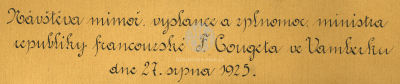 Návštěva mimoř. vyslance a zplnomoc. ministra
republiky francouzské F. Cougeta ve Vamberku
dne 27. srpna 1925.